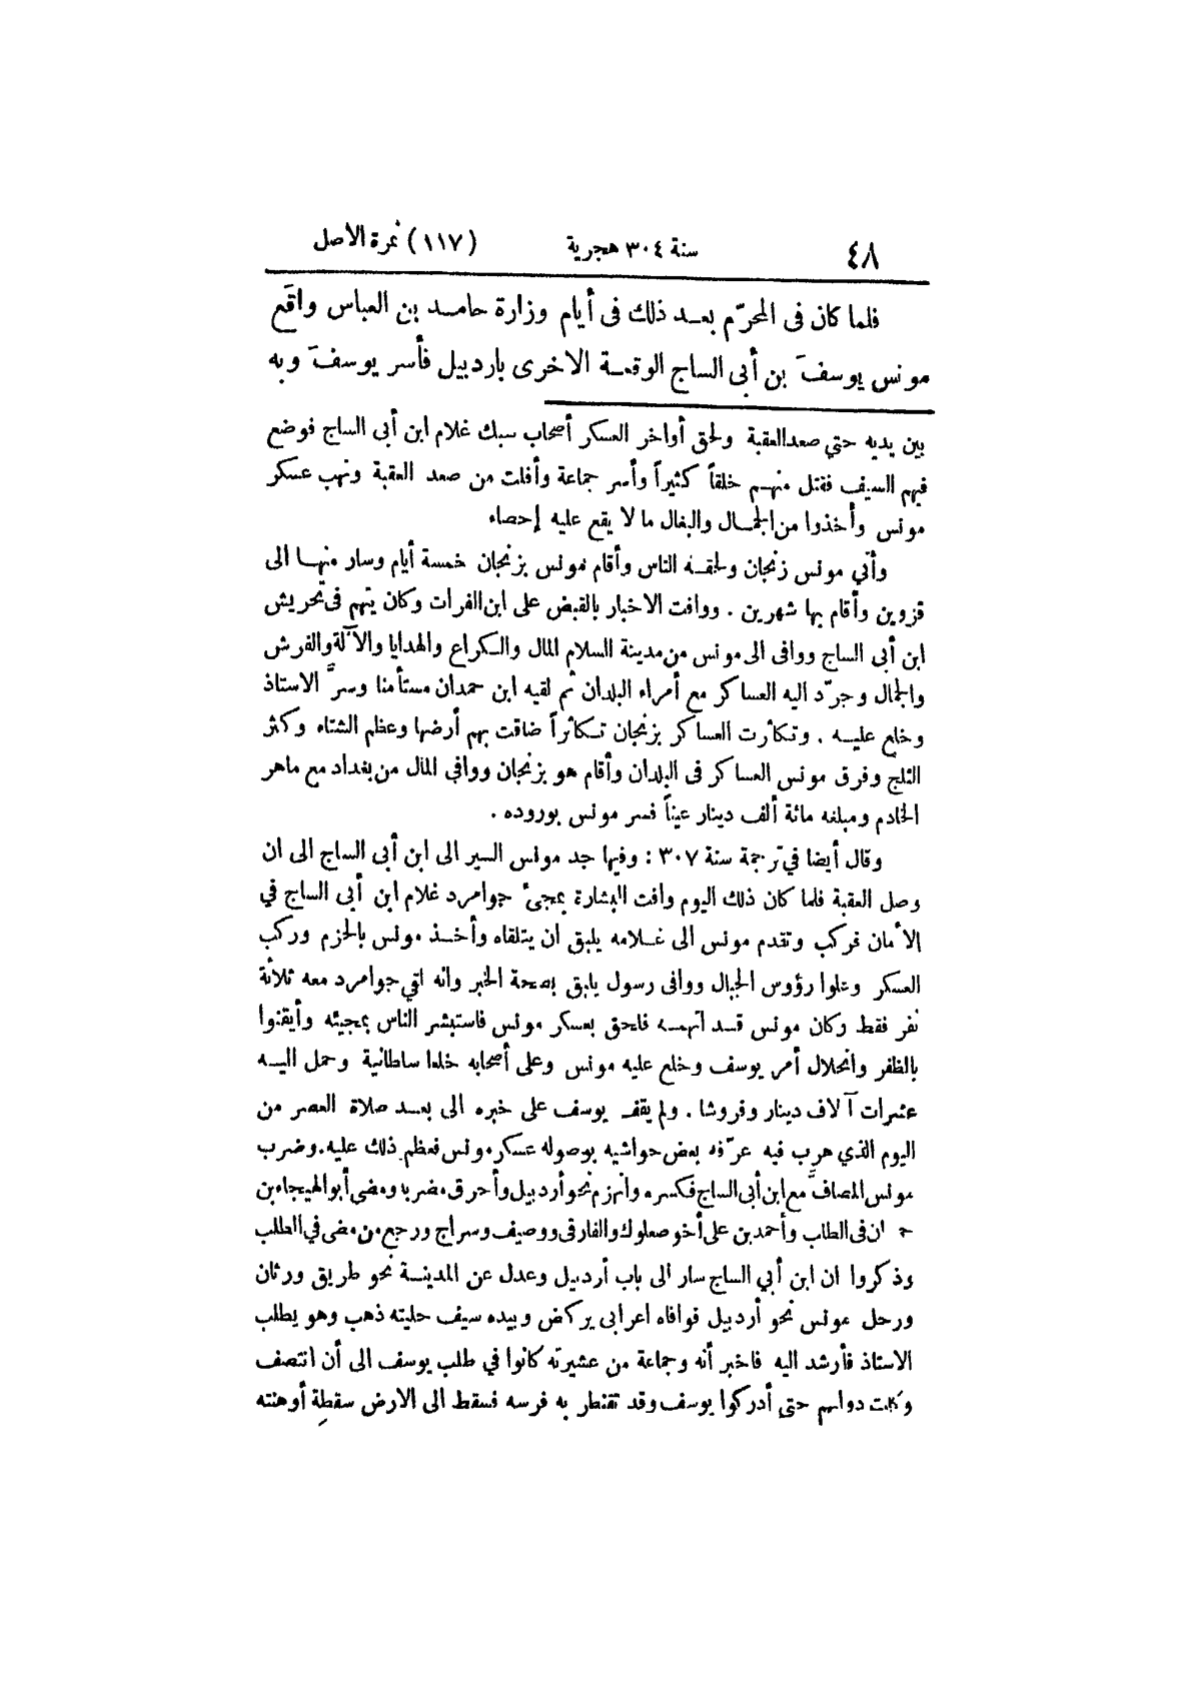 ٤٨ سنة ٣٠٤ هجرية (١١٧) نمرة الاصل
فلما كان فى المحرّم بعد ذلك فى أيام وزارة حامد بن العباس واقَع
مونس يوسفَ بن أبى الساج الوقعة الاخرى باردبيل فأسر يوسفَ وبه
بين يديه حتي صعد العقبة ولحق أواخر العسكر أصحاب سبك غلام ابن أبى الساج فوضع
فيهم السيف فقتل منهم خلقاً كثيراً وأسر جماعة وأفلت من صعد العقبة ونهب عسكر
مونس وأخذوا من الجمال والبغال ما لا يقع عليه إحصاء
وأتي مونس زنجان ولحقه الناس وأقام مونس بزنجان خمسة أيام وسار منها الى
قزوين وأقام بها شهرين . ووافت الاخبار بالقبض على ابن الفرات وكان يتهم فى تحريش
ابن أبى الساج ووافى الى مونس من مدينة السلام المال والكراع والهدايا والآلة والفرش
والجمال وجرّد اليه العساكر مع أمراء البلدان ثم لقيه ابن حمدان مستأمنا وسرَّ الاستاذ
وخلع عليه . وتكاثرت العساكر بزنجان تكاثراً ضاقت بهم أرضها وعظم الشتاء وكثر
الثلج وفرق مونس العساكر فى البلدان وأقام هو بزنجان ووافى المال من بغداد مع ماهر
الخادم ومبلغه مائة ألف دينار عيناً فسر مونس بوروده .
وقال أيضا في ترجمة سنة ٣٠٧ : وفيها جد مونس السير الى ابن أبي الساج الى ان
وصل العقبة فلما كان ذلك اليوم وافت البشارة بمجىء جوامرد غلام ابن أبى الساج في
الأمان فركب وتقدم مونس الى غلامه يلبق ان يتلقاه وأخذ مونس بالحزم وركب
العسكر وعلوا رؤوس الجبال ووافى رسول يلبق بصحة الخبر وانه اتي جوامرد معه ثلاثة
نفر فقط وكان مونس قد اتهمه فلحق بعسكر مونس فاستبشر الناس بمجيئه وأيقنوا
بالظفر وانحلال أمر يوسف وخلع عليه مونس وعلى أصحابه خلعا سلطانية وحمل اليه
عشرات آلاف دينار وفروشا . ولم يقف يوسف على خبره الى بعد صلاة العصر من
اليوم الذي هرب فيه عرّفه بعض حواشيه بوصوله عسكر مونس فعظم ذلك عليه . وضرب
مونس المصافَّ مع ابن أبى الساج فكسره وانهزم نحو أردبيل وأحرق مضربا ومضى أبو الهيجاء بن
ان فى الطلب وأحمد بن على أخو صعلوك والفارقى ووصيف وسراج ورجع من مضى في الطلب
وذكروا ان ابن أبي الساج سار الى باب أردبيل وعدل عن المدينة نحو طريق ورثان
ورحل مونس نحو أردبيل فوافاه اعرابى يركض وبيده سيف حليته ذهب وهو يطلب
الاستاذ فأرشد اليه فاخبر أنه وجماعة من عشيرته كانوا في طلب يوسف الى أن انتصف
وكلت دوابهم حتى أدركوا يوسف وقد تقنطر به فرسه فسقط الى الارض سقطة أوهنته